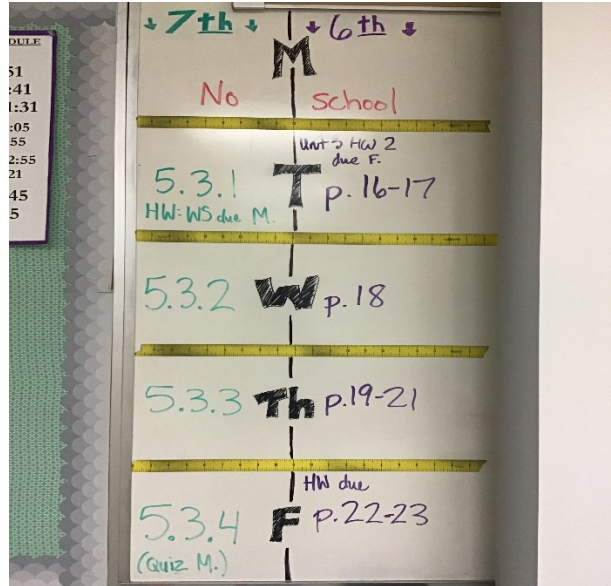 DULE
51
:41
1:31
:05
55
2:55
21
45
5
↓ 7th ↓ ↓ 6th ↓
M
No school
Unit 5 HW 2
due F.
5.3.1 T p. 16-17
HW: WS due M.
5.3.2 W p. 18
5.3.3 Th p.19-21
HW due
5.3.4 F p.22-23
(Quiz M.)